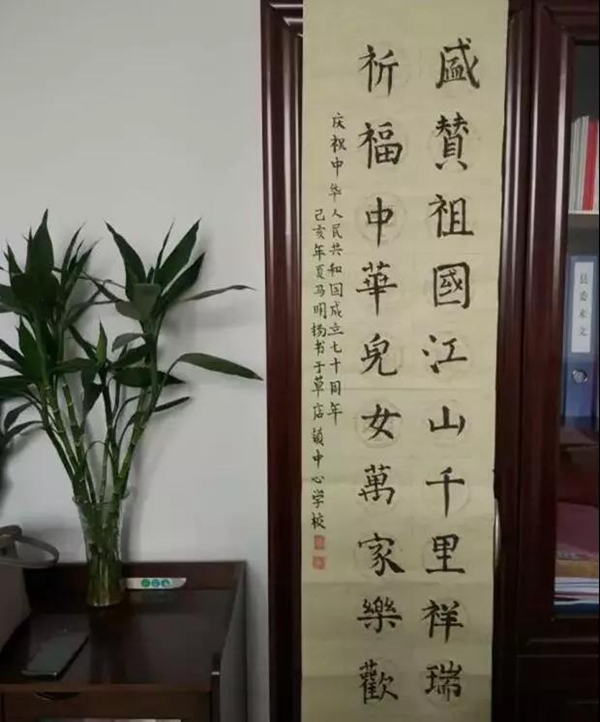 盛赞祖國江山千里祥瑞
祈福中華兒女萬家樂歡
庆祝中华人民共和国成立七十周年
己亥年夏马明杨书于草店镇中心学校
县委来文